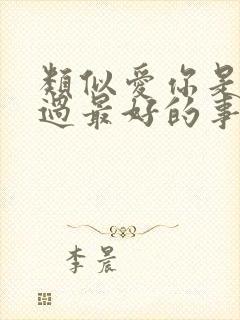 類似愛你是
過最好的事
李晨